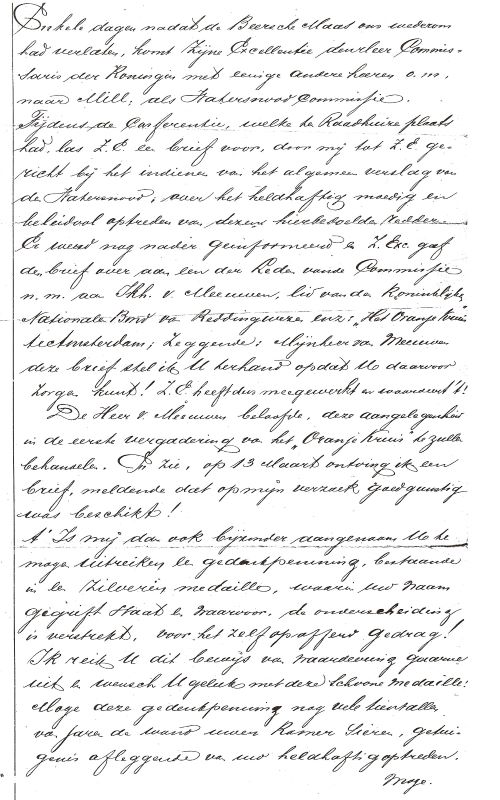 Enkele dagen nadat de Beersche Maas ons wederom
had verlaten, komt Zijne Excellentie de Heer Commis-
saris der Koningin met eenige andere heeren o.m.
naar Mill, als Watersnood Commissie.
Tijdens de Conferentie, welke te Raadhuize plaats
had, las Z.E. een brief voor, door mij tot Z.E. ge-
richt bij het indienen van het algemeen verslag van
de Watersnood, over het heldhaftig moedig en
beleidvol optreden van dezen hierbedoelden redder
Er werd nog nader geinformeerd en Z. Exc. gaf
den brief over aan een der Leden van de Commissie
n.m. aan Jkh. v. Meeuwen, lid van den Koninklijke
Nationale Bond van Reddingwezen enz: "Het Oranje Kruis"
te Amsterdam; zeggende: Mijnheer van Meeuwen
deze brief stel ik U terhand opdat U daarvoor
zorgen kunt! Z.E. heeft dus meegewerkt en waardeert 't!
De Heer v. Meeuwen beloofde, deze aangelegenheid
in de eerste vergadering van het "Oranje Kruis" te zullen
behandelen. En zie, op 13 Maart ontving ik een
brief, meldende dat op mijn verzoek goedgunstig
was beschikt!
't Is mij dan ook bijzonder aangenaam U te
mogen uitreiken de gedenkpenning, bestaande
in een zilveren medaille, waarin uw naam
gegrift staat en waarvoor, de onderscheiding
is verstrekt, voor het zelfopofferend gedrag!
Ik reik U dit bewijs van waardeering gaarne
uit en wensch U geluk met deze schoone medaille!
Moge deze gedenkpenning nog vele tientallen
van jaren de wand uwer Kamer sieren, getui-
genis afleggende van uw heldhaftig optreden.
Moge.